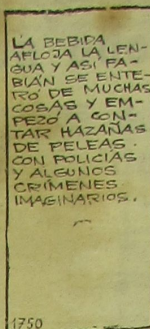 LA BEBIDA
AFLOJA LA LEN-
GUA Y ASÍ FA-
BIÁN SE ENTE-
RÓ DE MUCHAS
COSAS Y EM-
PEZÓ A CON-
TAR HAZAÑAS
DE PELEAS
CON POLICÍAS
Y ALGUNOS
CRÍMENES
IMAGINARIOS.
1750